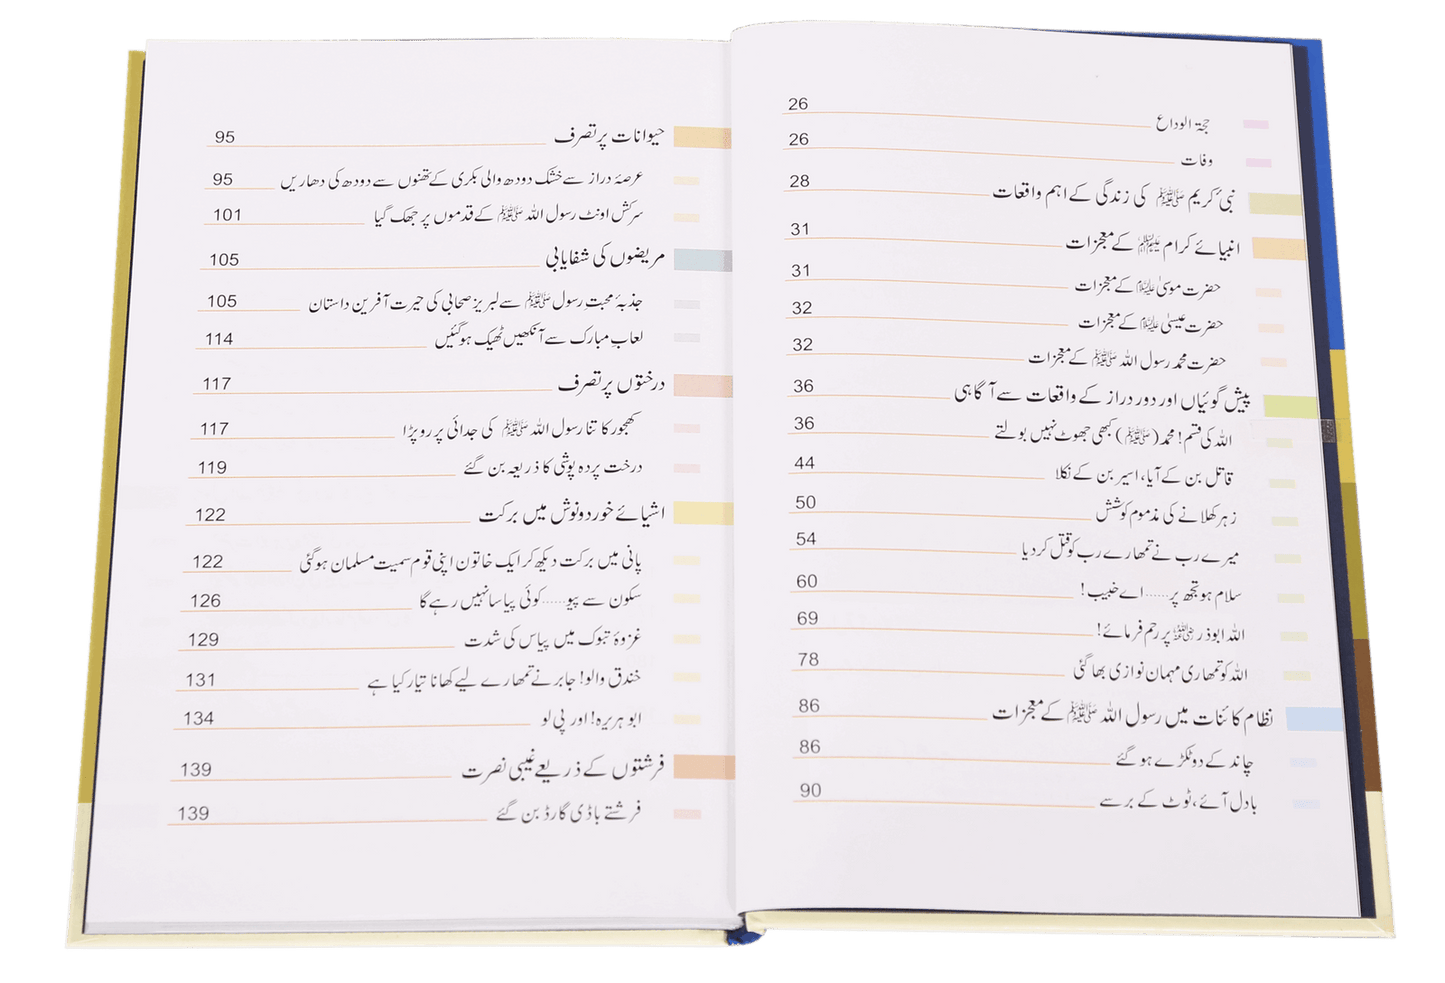 حجۃ الوداع 26
وفات 26
نبیٔ کریم ﷺ کی زندگی کے اہم واقعات 28
انبیائے کرام علیہم السلام کے معجزات 31
حضرت موسیٰ علیہ السلام کے معجزات 31
حضرت عیسیٰ علیہ السلام کے معجزات 32
حضرت محمد رسول اللہ ﷺ کے معجزات 32
پیش گوئیاں اور دور دراز کے واقعات سے آگاہی 36
اللہ کی قسم! محمد (ﷺ) کبھی جھوٹ نہیں بولتے 36
قاتل بن کے آیا، اسیر بن کے نکلا 44
زہر کھلانے کی مذموم کوشش 50
میرے رب نے تمھارے رب کو قتل کر دیا 54
سلام ہو تجھ پر...... اے خبیب! 60
اللہ ابوذر رضی اللہ عنہ پر رحم فرمائے! 69
اللہ کو تمھاری مہمان نوازی بھا گئی 78
نظام کائنات میں رسول اللہ ﷺ کے معجزات 86
چاند کے دو ٹکڑے ہو گئے 86
بادل آئے، ٹوٹ کے برسے 90
حیوانات پر تصرف 95
عرصۂ دراز سے خشک دودھ والی بکری کے تھنوں سے دودھ کی دھاریں 95
سرکش اونٹ رسول اللہ ﷺ کے قدموں پر جھک گیا 101
مریضوں کی شفایابی 105
جذبۂ محبت رسول ﷺ سے لبریز صحابی کی حیرت آفرین داستان 105
لعابِ مبارک سے آنکھیں ٹھیک ہو گئیں 114
درختوں پر تصرف 117
کھجور کا تنا رسول اللہ ﷺ کی جدائی پر رو پڑا 117
درخت پردہ پوشی کا ذریعہ بن گئے 119
اشیائے خورد و نوش میں برکت 122
پانی میں برکت دیکھ کر ایک خاتون اپنی قوم سمیت مسلمان ہو گئی 122
سکون سے پیو...... کوئی پیاسا نہیں رہے گا 126
غزوۂ تبوک میں پیاس کی شدت 129
خندق والو! جابر نے تمھارے لیے کھانا تیار کیا ہے 131
ابو ہریرہ! اور پی لو 134
فرشتوں کے ذریعے غیبی نصرت 139
فرشتے باڈی گارڈ بن گئے 139